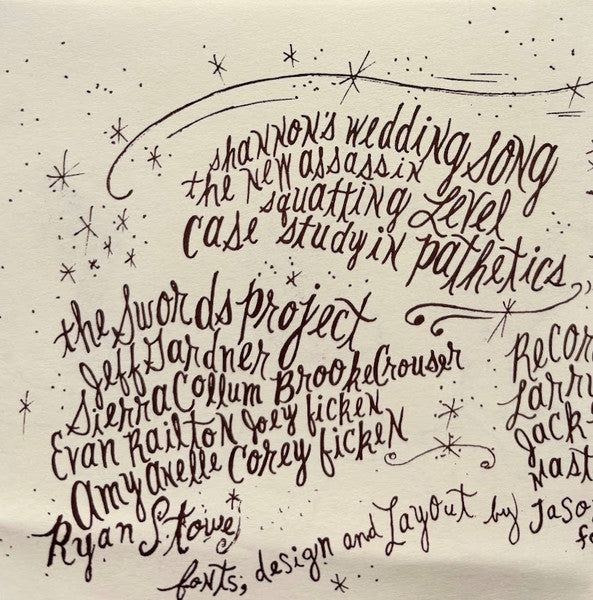 shannon's wedding song
the new assassin
squatting level
case study in pathetics
the swords project
Jeff Gardner
Sierra Collum Brooke Crouser
Evan Railton Joey ficken
Amy Anelle Corey ficken
Ryan Stowe
Recor
Larry
Jack
Mast
fonts, design and Layout by Jaso
fo